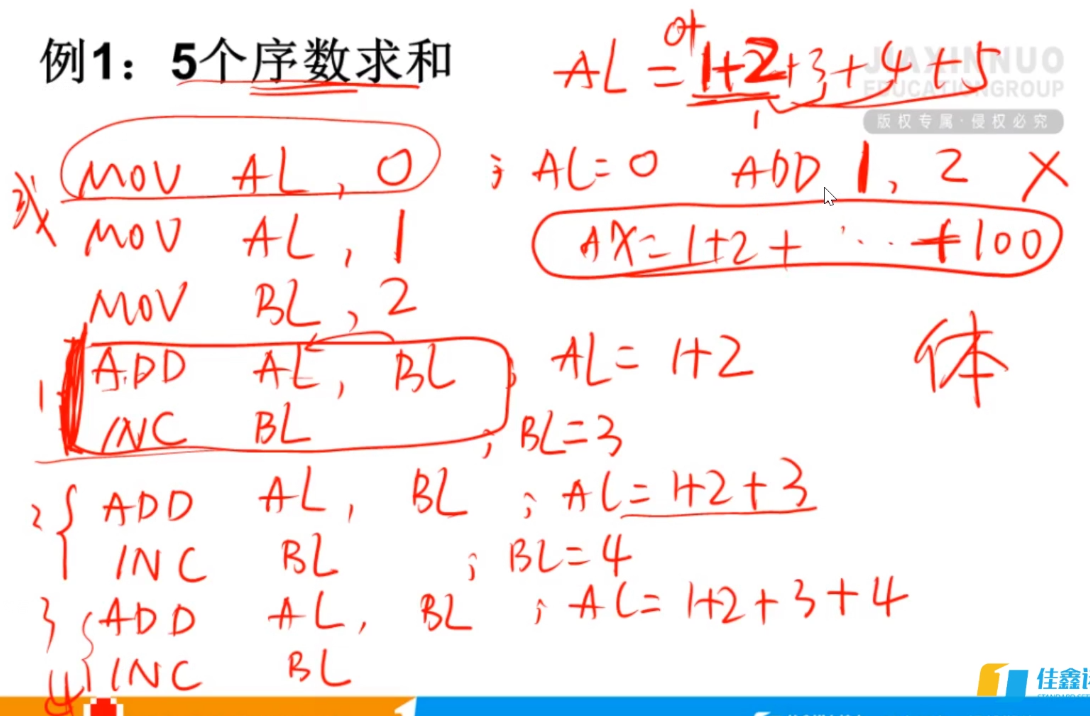 例1：5个序数求和
AL = 0+1+2+3+4+5
JIAXINNUO
EDUCATIONGROUP
版权专属·侵权必究
MOV AL, 0 ; AL=0 ADD 1, 2 X
或 MOV AL, 1
AX=1+2+ ... +100
MOV BL, 2
1 ADD AL, BL ; AL= 1+2
体
INC BL ; BL=3
2 { ADD AL, BL ; AL=1+2+3
INC BL ; BL=4
3 { ADD AL, BL ; AL= 1+2+3+4
INC BL
4
佳鑫